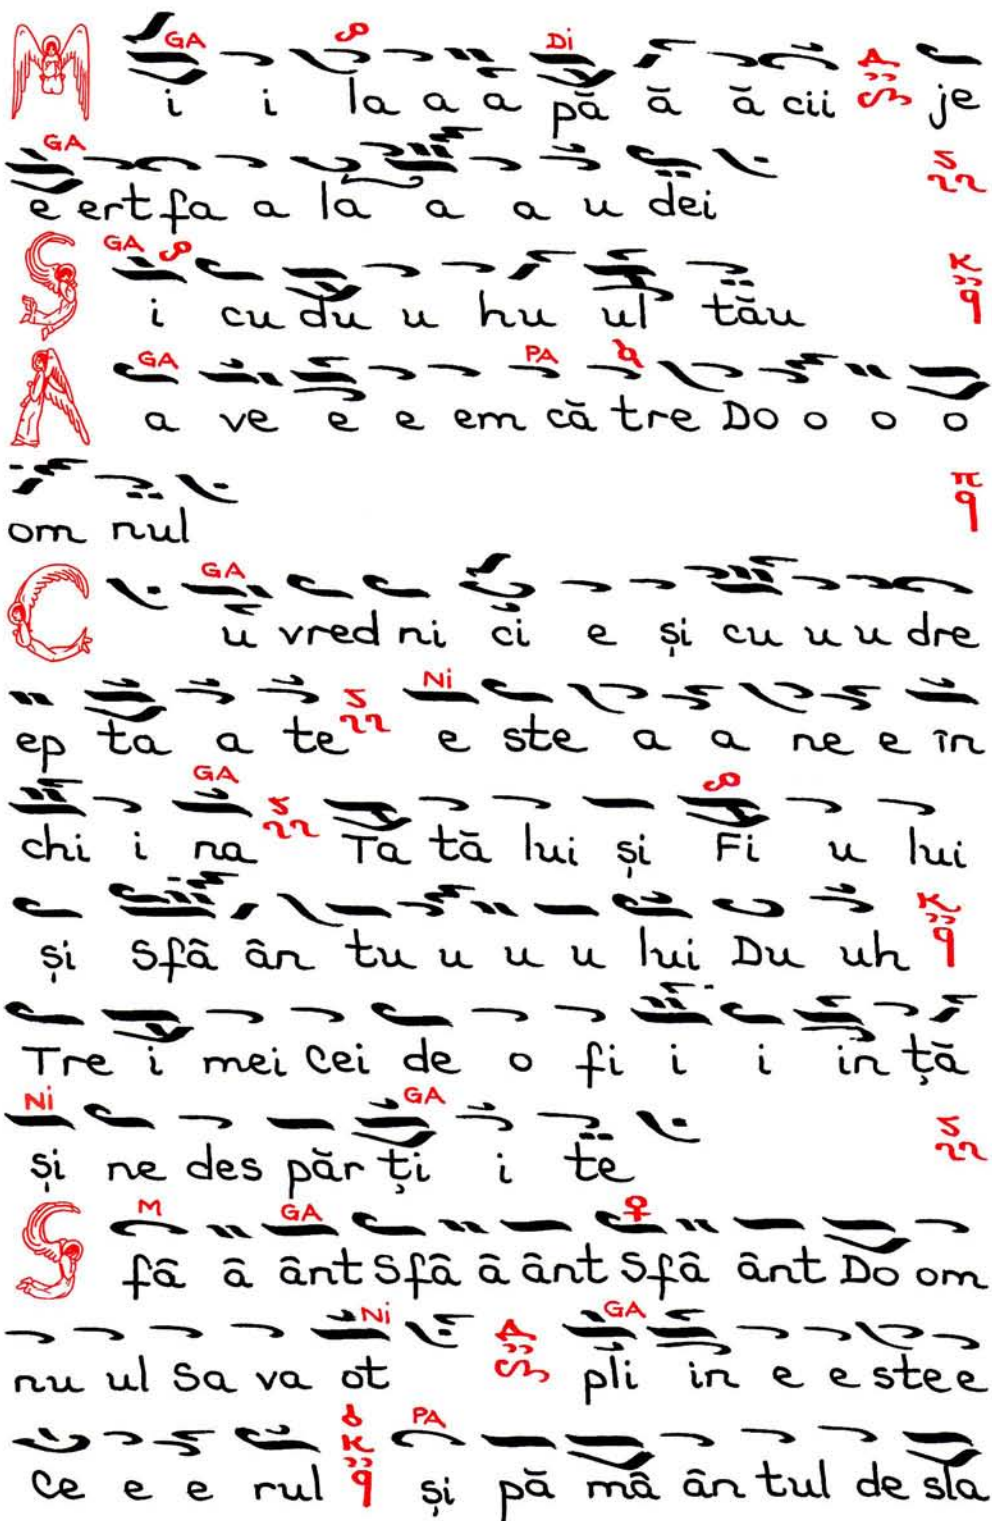 GA Di
M i i la a a pă ă ă cii je
GA
e ert fa a la a a u dei
GA
S i cu du u hu ul tău
GA PA
A a ve e e em că tre Do o o o
om nul
GA
C u vred ni ci e și cu u u dre
Ni
ep ta a te e ste a a ne e în
GA
chi i na Ta tă lui și Fi u lui
și Sfâ ân tu u u u lui Du uh
Tre i mei cei de o fi i i in ță
Ni GA
și ne des păr ți i te
M GA
S fâ â ânt Sfâ â ânt Sfâ ânt Do om
Ni GA
nu ul Sa va ot pli in e e ste e
PA
Ce e e rul și pă mâ ân tul de sla